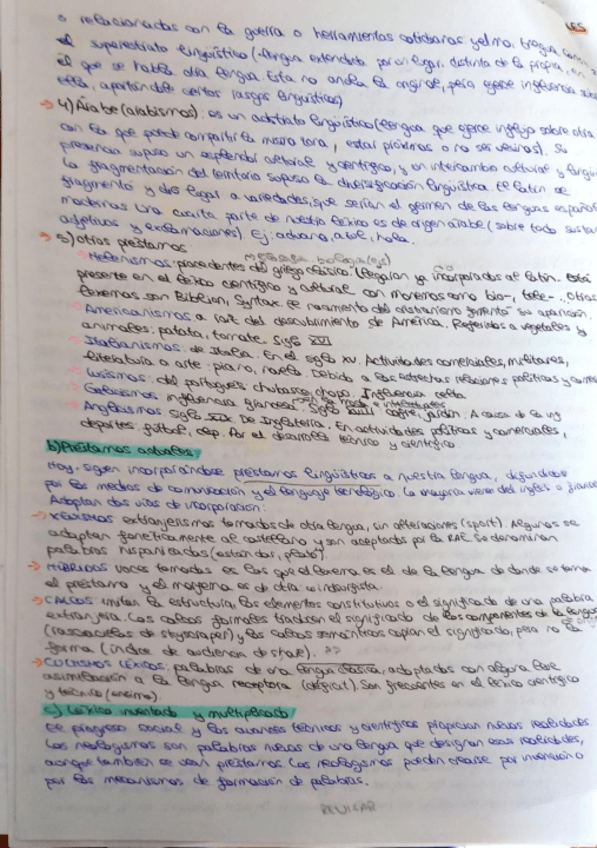 LES
o relacionadas con la guerra o herramientas cotidianas: yelmo, tregua,
el superestrato lingüístico (lengua extendida por un lugar, distinta de la propia, en
el que se habla otra lengua. Esta no anula la original, pero ejerce influencia sobre
ella, aportándole ciertos rasgos lingüísticos)
→ 4) Árabe (arabismos): es un adstrato lingüístico (lengua que ejerce influjo sobre otra
con la que puede compartir la misma zona, estar próximos o no ser vecinos). Su
presencia supuso un esplendor cultural y científico, y un intercambio cultural y
la fragmentación del territorio supuso la diversificación lingüística. El latín se
fragmentó y dio lugar a variedades, que serían el germen de las lenguas
modernas. Una cuarta parte de nuestro léxico es de origen árabe (sobre todo
adjetivos y exclamaciones). Ej: aduana, hola.
→ 5) Otros préstamos:
Helenismos: procedentes del griego clásico. Llegaron ya incorporados al latín. Está
presente en el léxico científico y cultural con morfemas como bio-, tele-. Otros
lexemas son Biblion, Syntax. El nacimiento del cristianismo fomentó su aparición.
Americanismos a raíz del descubrimiento de América. Referidos a vegetales y
animales: patata, tomate. Siglo XVI
Italianismos: de Italia. En el siglo XV. Actividades comerciales, militares,
literatura o arte: piano, novela. Debido a las estrechas relaciones políticas y
Lusismos: del portugués: chubasco, chopo. Influencia celta
Galicismos influencia francesa. Siglo XVIII cofre, jardín. A causa de la
Anglicismos siglo XIX De Inglaterra. En actividades políticas y comerciales,
deportes: fútbol, clip. Por el desarrollo técnico y científico
b) Préstamos actuales
Hoy siguen incorporándose préstamos lingüísticos a nuestra lengua, difundidos
por los medios de comunicación y el lenguaje tecnológico. La mayoría viene del inglés o francés
Adoptan dos vías de incorporación:
→ extranjerismos tomados de otra lengua, sin alteraciones (sport). Algunos se
adaptan fonéticamente al castellano y son aceptados por la RAE. Se denominan
palabras hispanizadas (estándar,
→ HÍBRIDOS voces tomadas en las que el lexema es el de la lengua de donde se toma
el préstamo y el morfema es de otra: windsurfista.
→ CALCOS imitan la estructura, los elementos constitutivos o el significado de una palabra
extranjera. Los calcos formales traducen el significado de los componentes de la lengua
(rascacielos de skyscraper) y los calcos semánticos copian el significado, pero no la
forma (índice de audiencia de share).
→ CULTISMOS LÉXICOS: palabras de una lengua clásica, adoptados con alguna leve
asimilación a la lengua receptora (digital). Son frecuentes en el léxico científico
y técnico
c) Léxico inventado y multiplicado
El progreso social y los avances técnicos y científicos propician nuevas realidades.
Los neologismos son palabras nuevas de una lengua que designan esas realidades,
aunque también se usan préstamos. Los neologismos pueden crearse por invención o
por los mecanismos de formación de palabras.
REVISAR